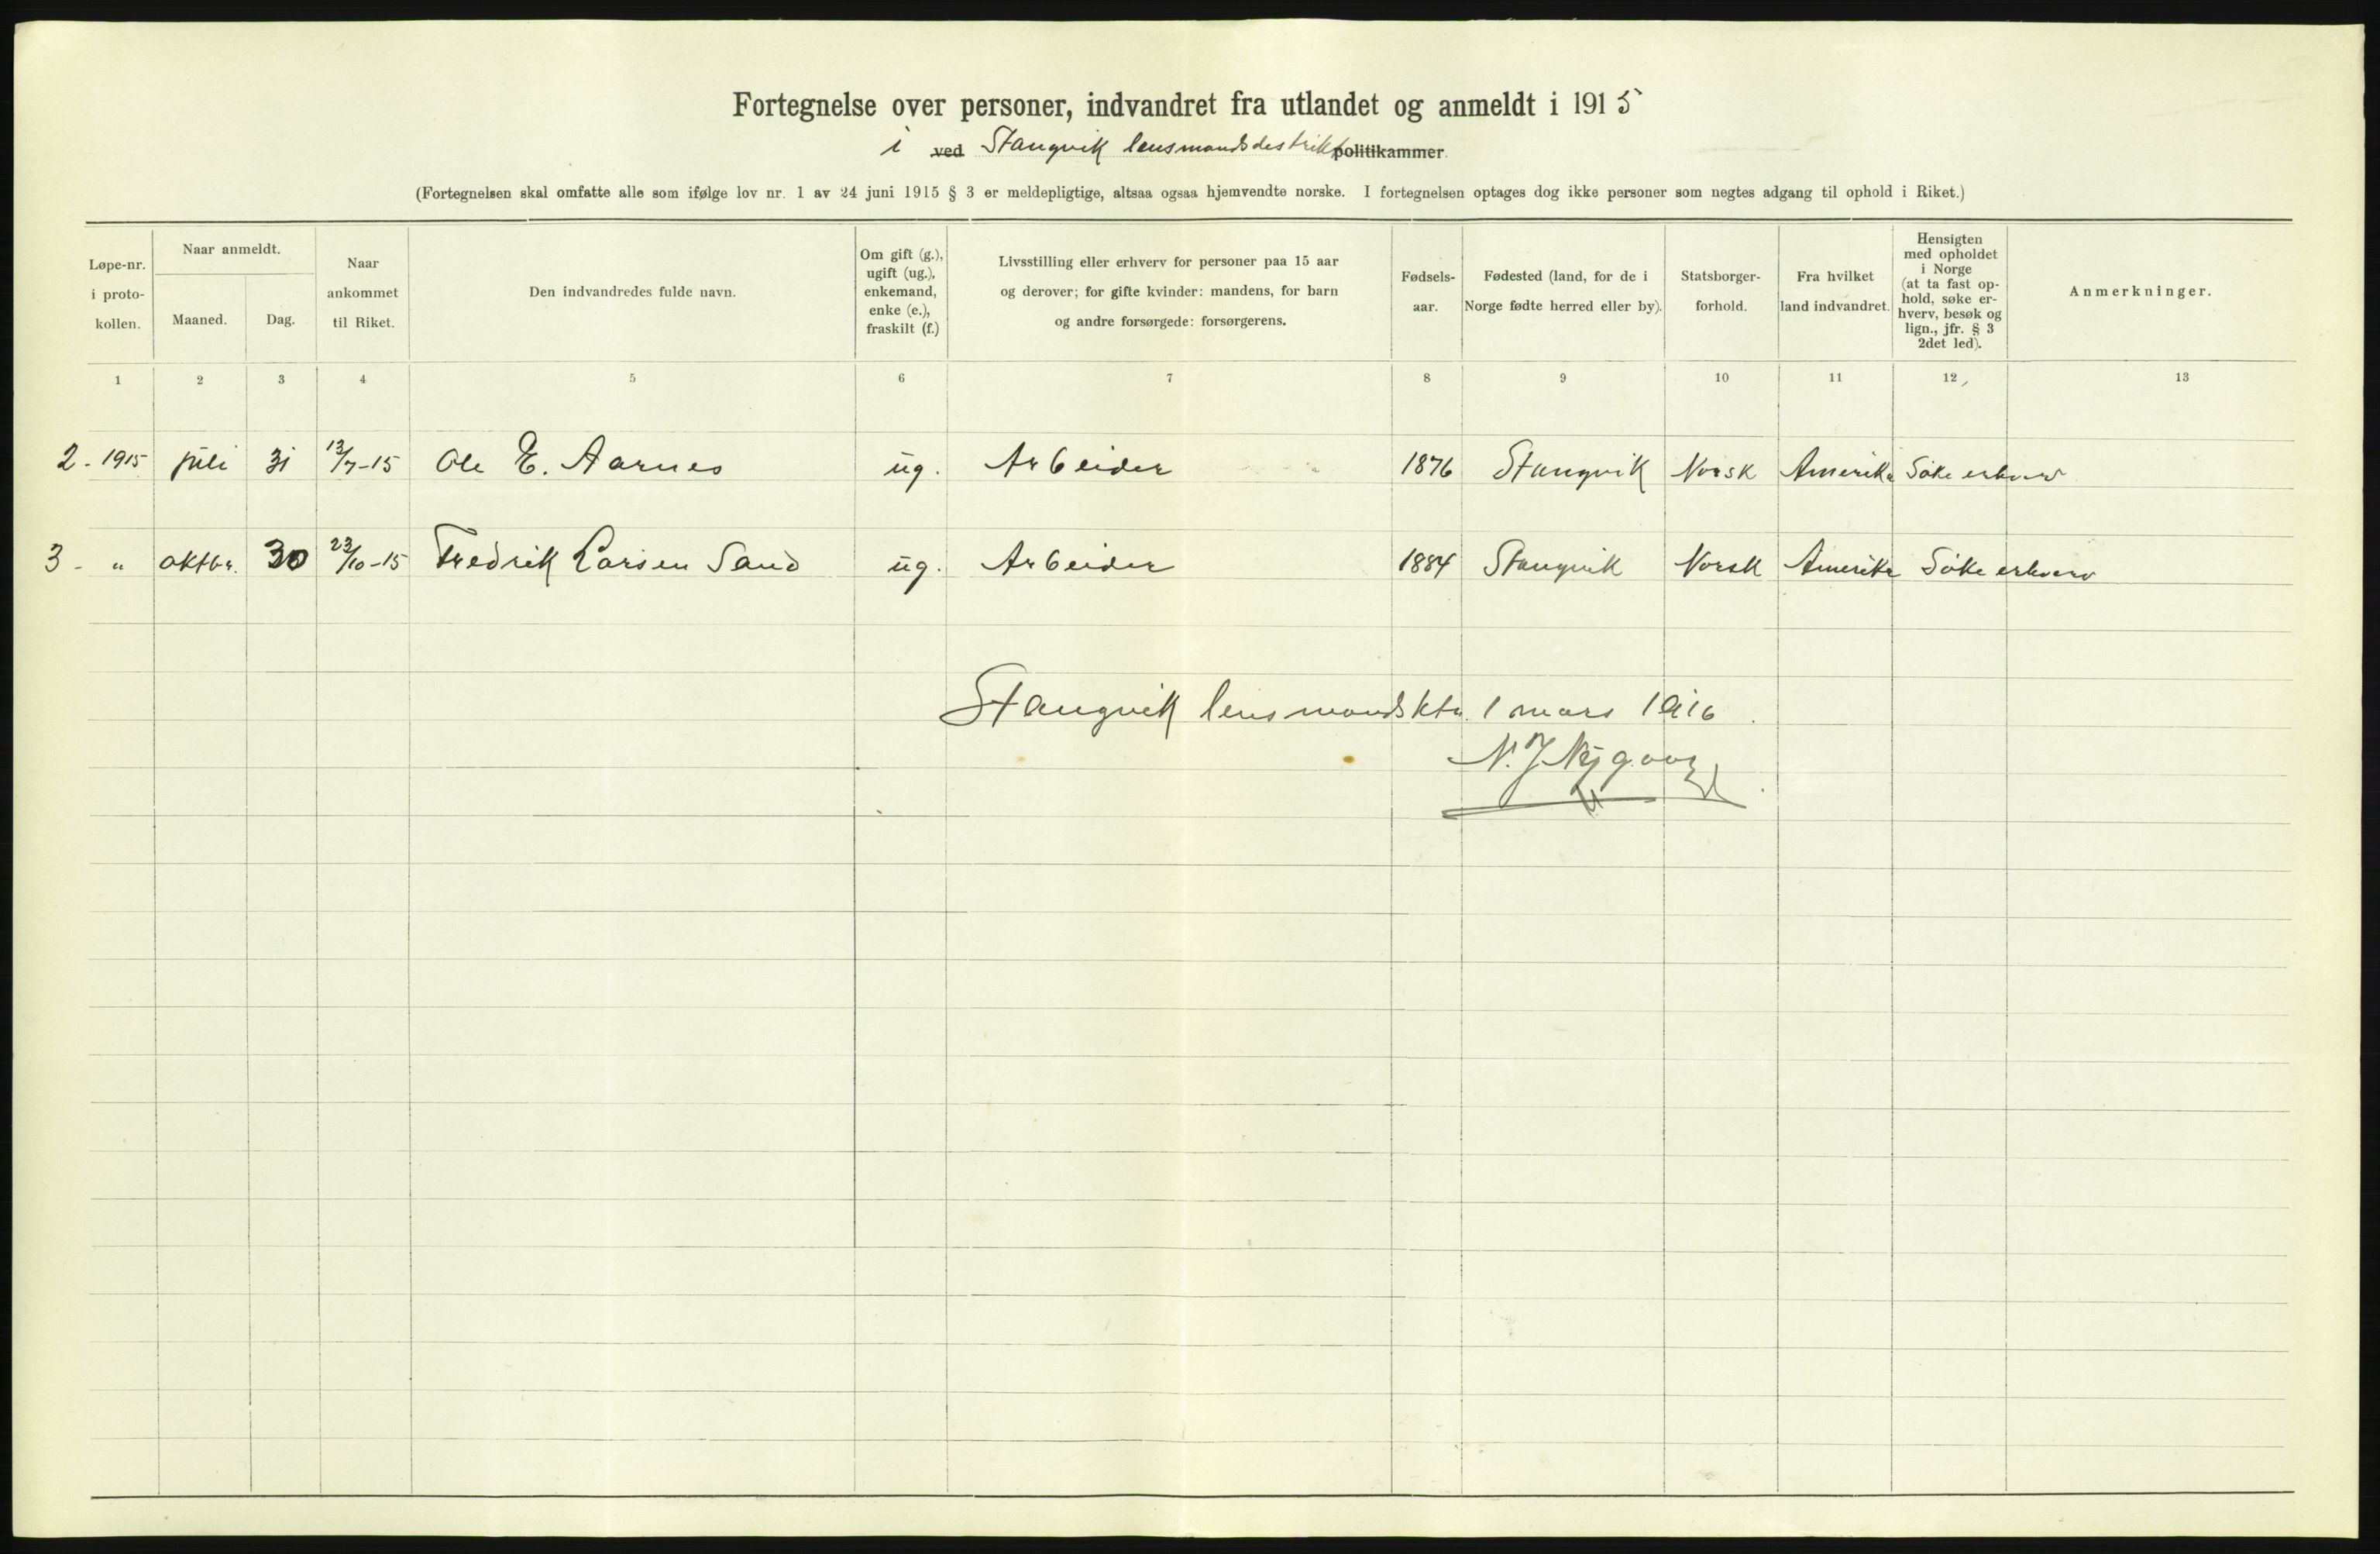 Fortegnelse over personer, indvandret fra utlandet og anmeldt i 1915
i ved Stangvik lensmandsdestrikt politikammer.
(Fortegnelsen skal omfatte alle som ifølge lov nr. 1 av 24 juni 1915 § 3 er meldepligtige, altsaa ogsaa hjemvendte norske. I fortegnelsen optages dog ikke personer som negtes adgang til ophold i Riket.)
Løpe-nr.
i proto-
kollen.
Naar anmeldt.
Maaned.
Dag.
Naar
ankommet
til Riket.
Den indvandredes fulde navn.
Om gift (g.),
ugift (ug.),
enkemand,
enke (e.),
fraskilt (f.)
Livsstilling eller erhverv for personer paa 15 aar
og derover; for gifte kvinder: mandens, for barn
og andre forsørgede: forsørgerens.
Fødsels-
aar.
Fødested (land, for de i
Norge fødte herred eller by).
Statsborger-
forhold.
Fra hvilket
land indvandret.
Hensigten
med opholdet
i Norge
(at ta fast op-
hold, søke er-
hverv, besøk og
lign., jfr. § 3
2det led).
Anmerkninger.
1 2 3 4 5 6 7 8 9 10 11 12 13
2 - 1915 juli 31 13/7-15 Ole E. Aarnes ug. Arbeider 1876 Stangvik Norsk Amerika Søke erhverv
3 - " oktbr. 30 23/10-15 Fredrik Larsen Sand ug. Arbeider 1884 Stangvik Norsk Amerika Søke erhverv
Stangvik lensmandsktr. 1 mars 1916.
N. J. Nygaard